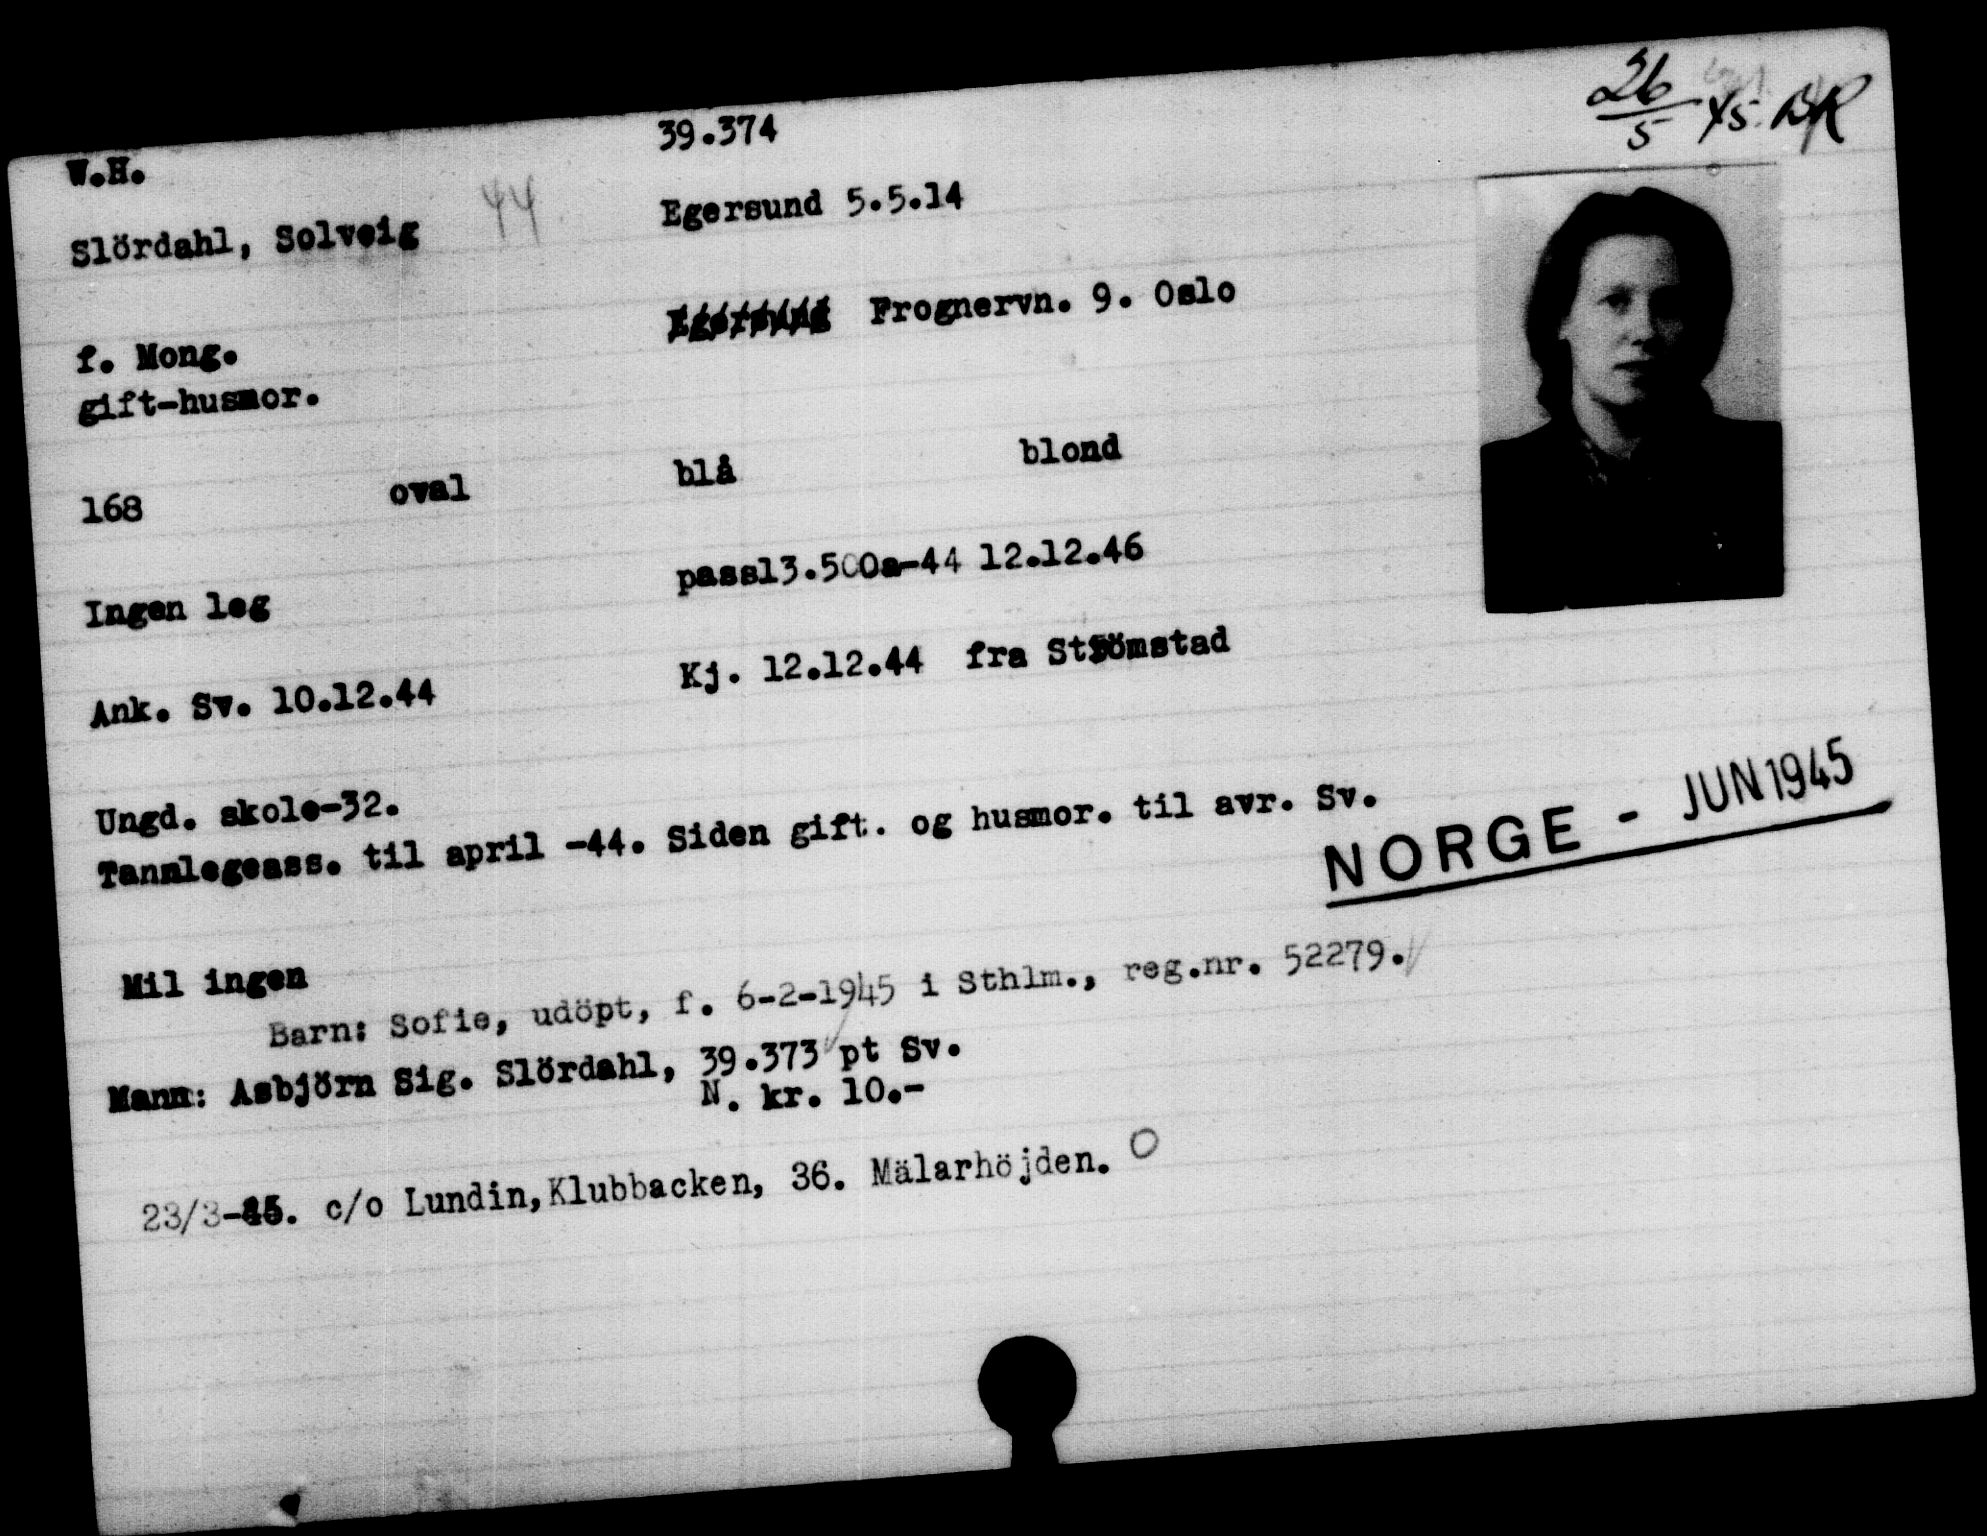 26/5 45. BR
W.H. 39.374
Slördahl, Solveig 44 Egersund 5.5.14
f. Mong. Frognervn. 9. Oslo
gift-husmor.
168 oval blå blond
Ingen leg pass13.500a-44 12.12.46
Ank. Sv. 10.12.44 Kj. 12.12.44 fra Strömstad
Ungd. skole-32.
Tannlegeass. til april -44. Siden gift. og husmor. til avr. Sv.
NORGE - JUN 1945
Mil ingen
Barn: Sofie, udöpt, f. 6-2-1945 i Sthlm., reg.nr. 52279.
Mann: Asbjörn Sig. Slördahl, 39.373 pt Sv.
N. kr. 10.-
23/3-45. c/o Lundin,Klubbacken, 36. Mälarhöjden. O